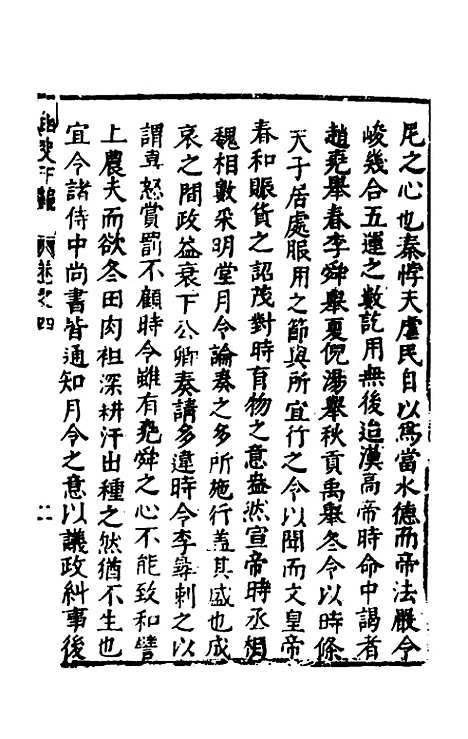 尼之心也秦悖天虐民自以為當水德而帝法嚴令
峻幾合五運之數訖用無後迨漢高帝時命中謁者
趙堯舉春李舜舉夏倪湯舉秋貢禹舉冬令以時條
天子居處服用之節與所宜行之令以聞而文皇帝
春和賑貸之詔茂對時育物之意盎然宣帝時丞相
魏相數采明堂月令論奏之多所施行蓋其盛也成
哀之間政益衰下公卿奏請多違時令李尋刺之以
謂喜怒賞罰不顧時令雖有堯舜之心不能致和譬
上農夫而欲冬田肉袒深耕汗出種之然猶不生也
宜令諸侍中尚書皆通知月令之意以議政糾事後
卷之四
二